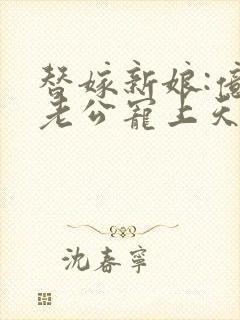 替嫁新娘:億
老公寵上天
沈春寧